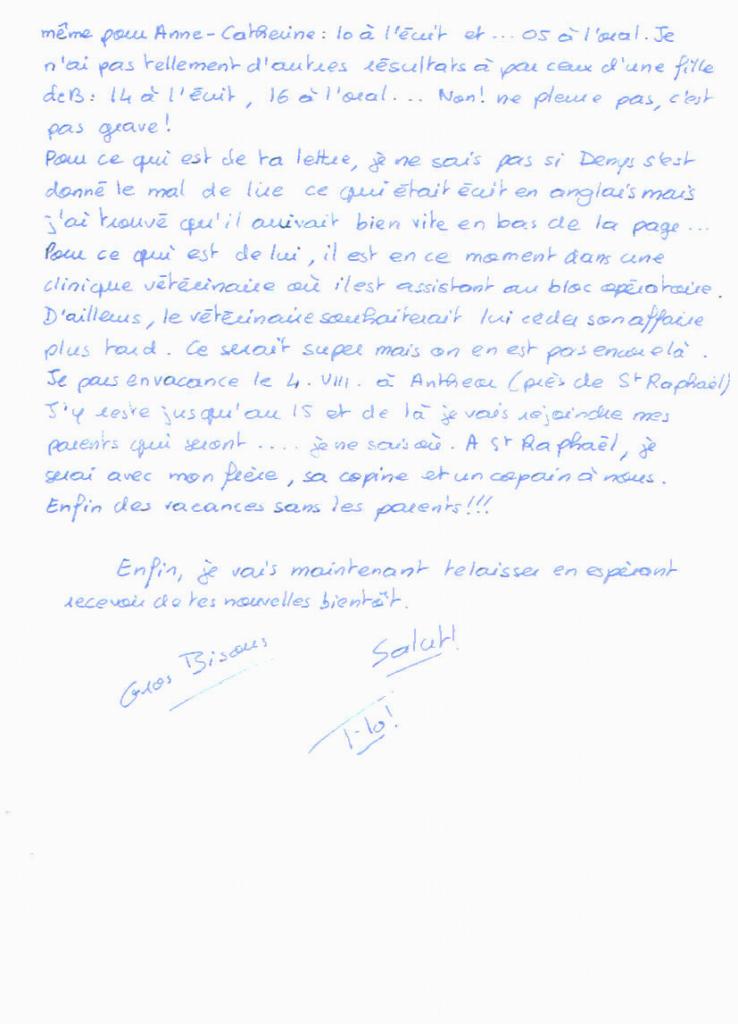 même pour Anne-Catherine : 10 à l'écrit et ... 05 à l'oral. Je
n'ai pas tellement d'autres résultats à par ceux d'une fille
de B : 14 à l'écrit, 16 à l'oral... Non! ne pleure pas, c'est
pas grave!
Pour ce qui est de ta lettre, je ne sais pas si Denys s'est
donné le mal de lire ce qui était écrit en anglais mais
j'ai trouvé qu'il arrivait bien vite en bas de la page ...
Pour ce qui est de lui, il est en ce moment dans une
clinique vétérinaire où il est assistant au bloc opératoire.
D'ailleurs, le vétérinaire souhaiterait lui céder son affaire
plus tard. Ce serait super mais on en est pas encore là.
Je pars en vacance le 4. VIII. à Antheor (près de St Raphaël)
J'y reste jusqu'au 15 et de là je vais rejoindre mes
parents qui seront .... je ne sais où. A St Raphaël, je
serai avec mon frère, sa copine et un copain à nous.
Enfin des vacances sans les parents!!!
Enfin, je vais maintenant te laisser en espérant
recevoir de tes nouvelles bientôt.
Gros Bisous
Salut!